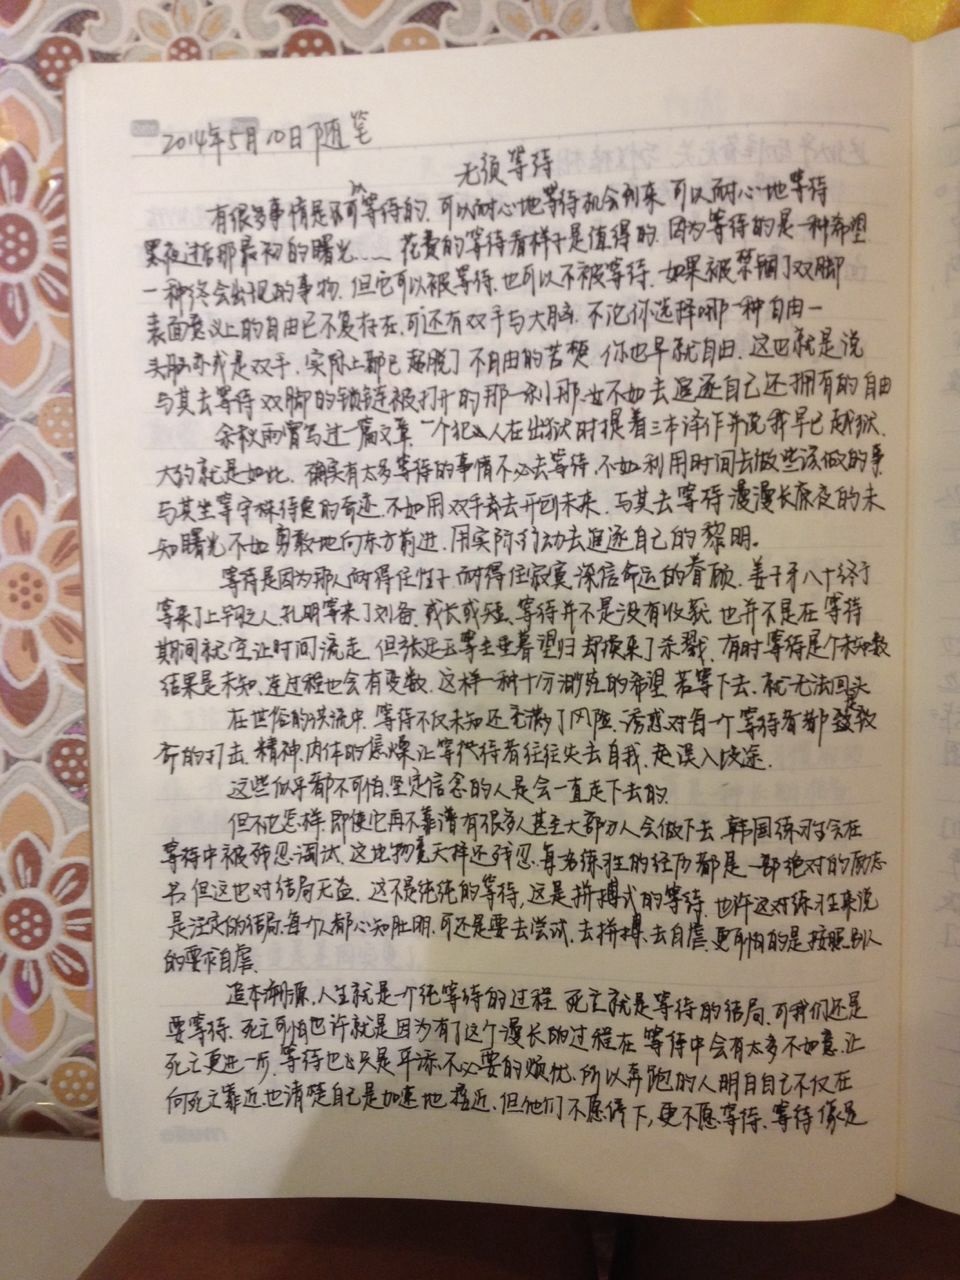 2014年5月10日随笔
无须等待
有很多事情是不可以等待的.可以耐心地等待机会到来.可以耐心地等待
黑夜过后那最初的曙光……花费的等待看样子是值得的.因为等待的是一种希望
一种终会出现的事物.但它可以被等待.也可以不被等待.如果被禁锢了双脚
表面意义上的自由已不复存在.可还有双手与大脑.不论你选择哪一种自由一
头脑亦或是双手.实际上都已超脱了不自由的苦楚.你也早就自由.这也就是说
与其去等待双脚的锁链被打开的那一刹那.不如去追逐自己还拥有的自由
余秋雨曾写过一篇文章.一个犯人在出狱时提着三本译作并说我早已越狱.
大约就是如此.确实有太多等待的事情不必去等待.不如利用时间去做些该做的事
与其坐等守株待兔的奇迹.不如用双手去开创未来.与其去等待漫漫长夜的未
知曙光不如勇敢地向东方前进.用实际行动去追逐自己的黎明。
等待是因为那人耐得住性子耐得住寂寞.深信命运的眷顾.姜子牙八十终于
等来了上钩之人.孔明等来了刘备.或长或短.等待并不是没有收获.也并不是在等待
期间就空让时间流走.但张廷玉等主垂暮望归却换来了杀戮.有时等待是个未知数
结果是未知.连过程也会有变数.这样一种十分渺茫的希望.若等下去.就无法回头
在世俗的洪流中.等待不仅未知还充满了风险.诱惑对每一个等待者都是致
命的打击.精神.肉体的焦燥让等待者往往失去自我.走误入歧途.
这些似乎都不可怕.坚定信念的人是会一直走下去的.
但不论怎样.即使它再不靠谱有很多人甚至大部分人会做下去.韩国练习生会在
等待中被残忍调试.这比物竞天择还残忍.每名练习生的经历都是一部绝对的励志
书.但这也对结局无益.这不是纯纯的等待.这是拼搏式的等待.也许这对练习生来说
是注定的结局.每个人都心知肚明.可还是要去尝试.去拼搏.去自虐.更可怕的是按照别人
的要求自虐.
追本溯源.人生就是一个纯等待的过程.死亡就是等待的结局.可我们还是
要等待.死亡可怕也许就是因为有了这个漫长的过程在等待中会有太多不如意.让
死亡更进一步.等待也只是平添不必要的烦忧.所以奔跑的人明白自己不仅在
向死亡靠近.也清楚自己是加速地接近.但他们不愿停下,更不愿等待.等待像是